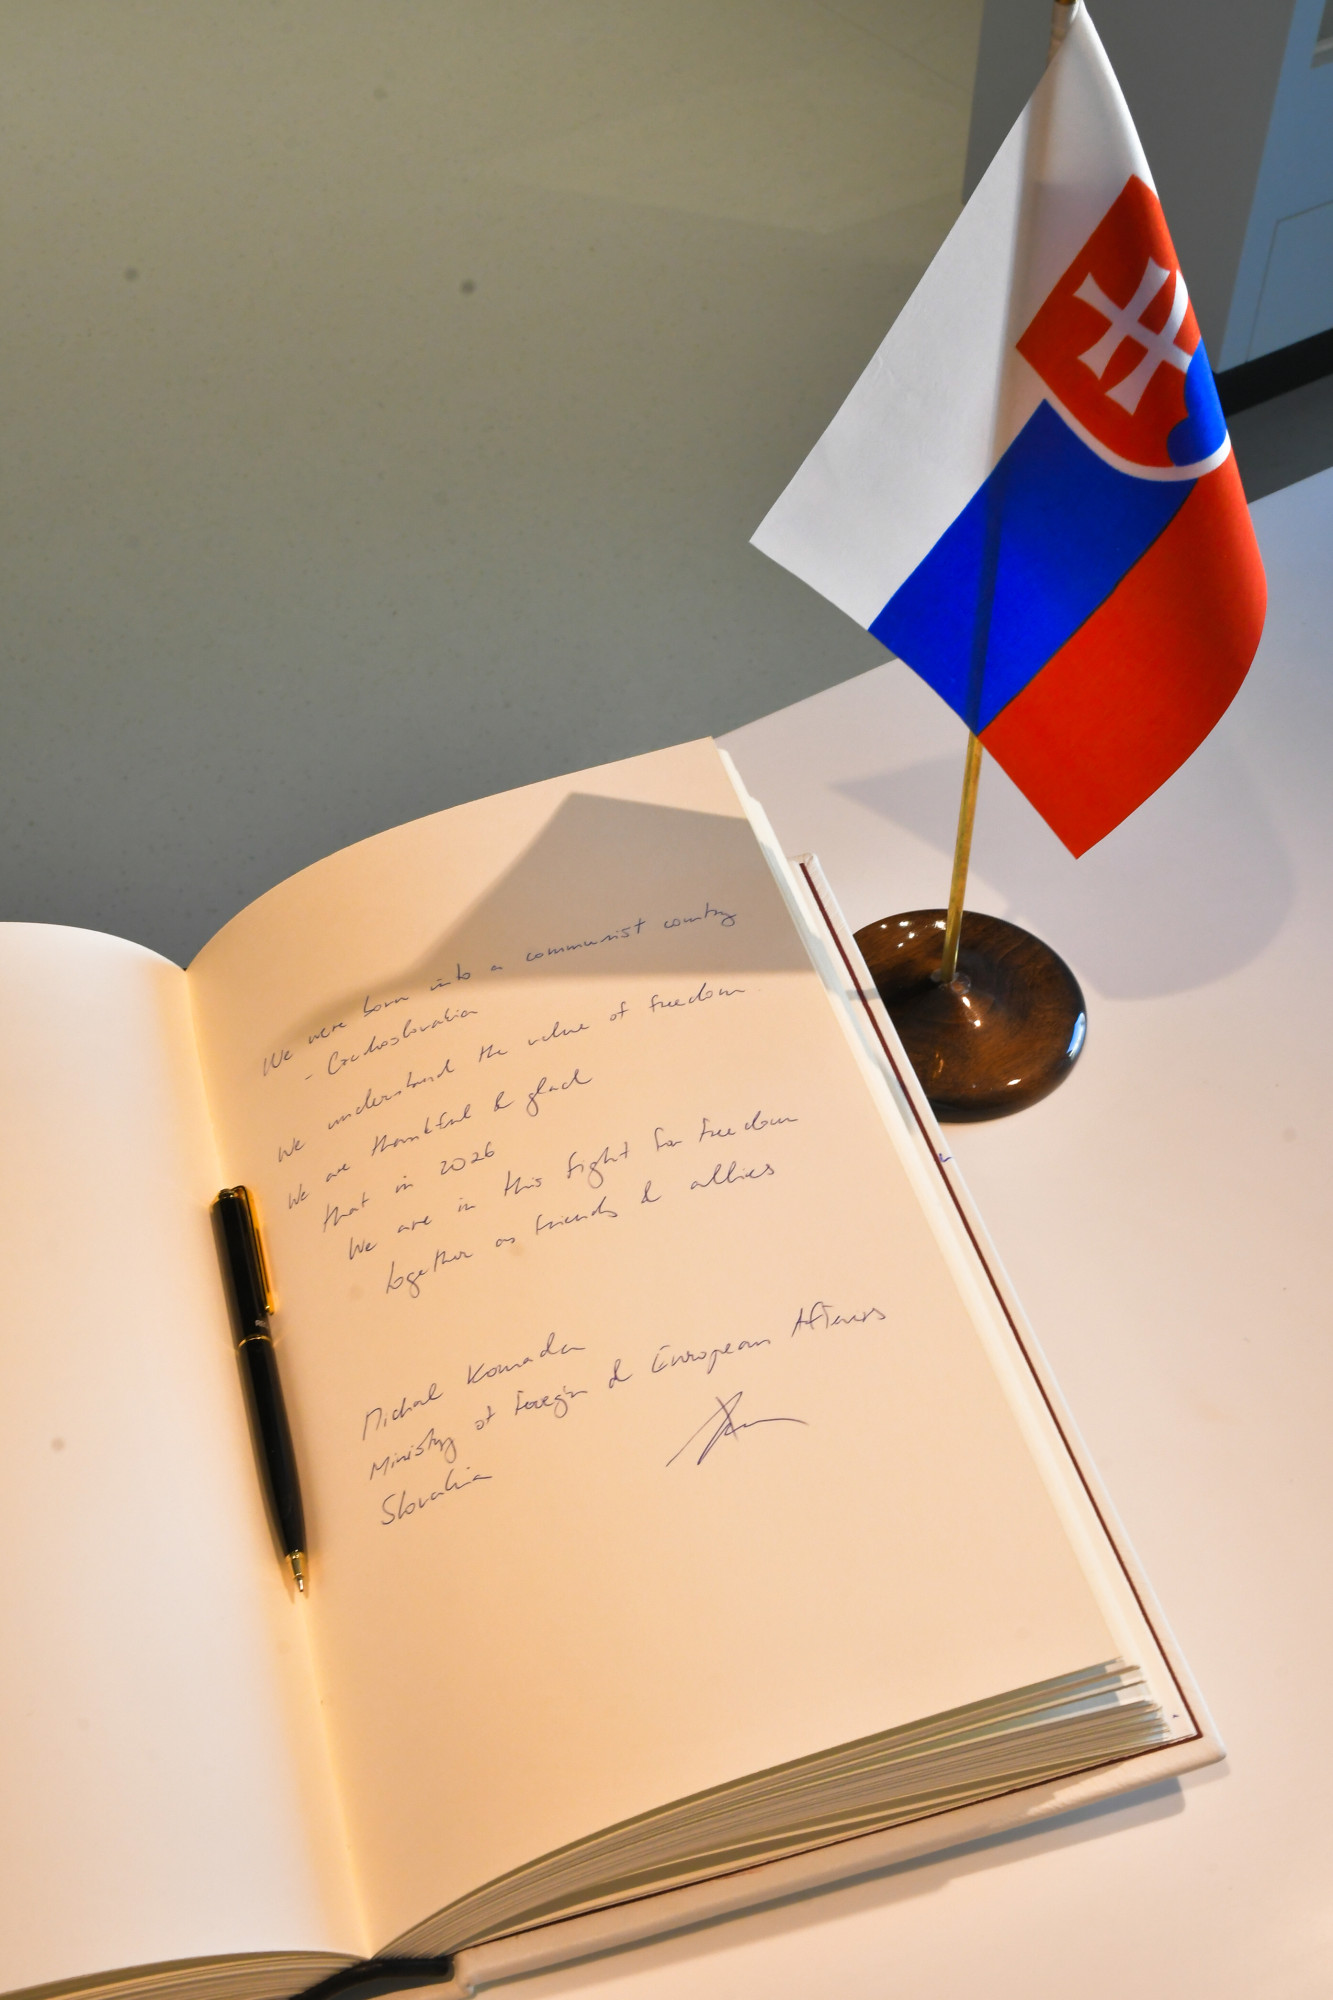 We were born into a communist country
- Czechoslovakia
We understand the value of freedom
We are thankful & glad
that in 2026
We are in this fight for freedom
together as friends & allies
Michal Komada
Ministry of Foreign & European Affairs
Slovakia